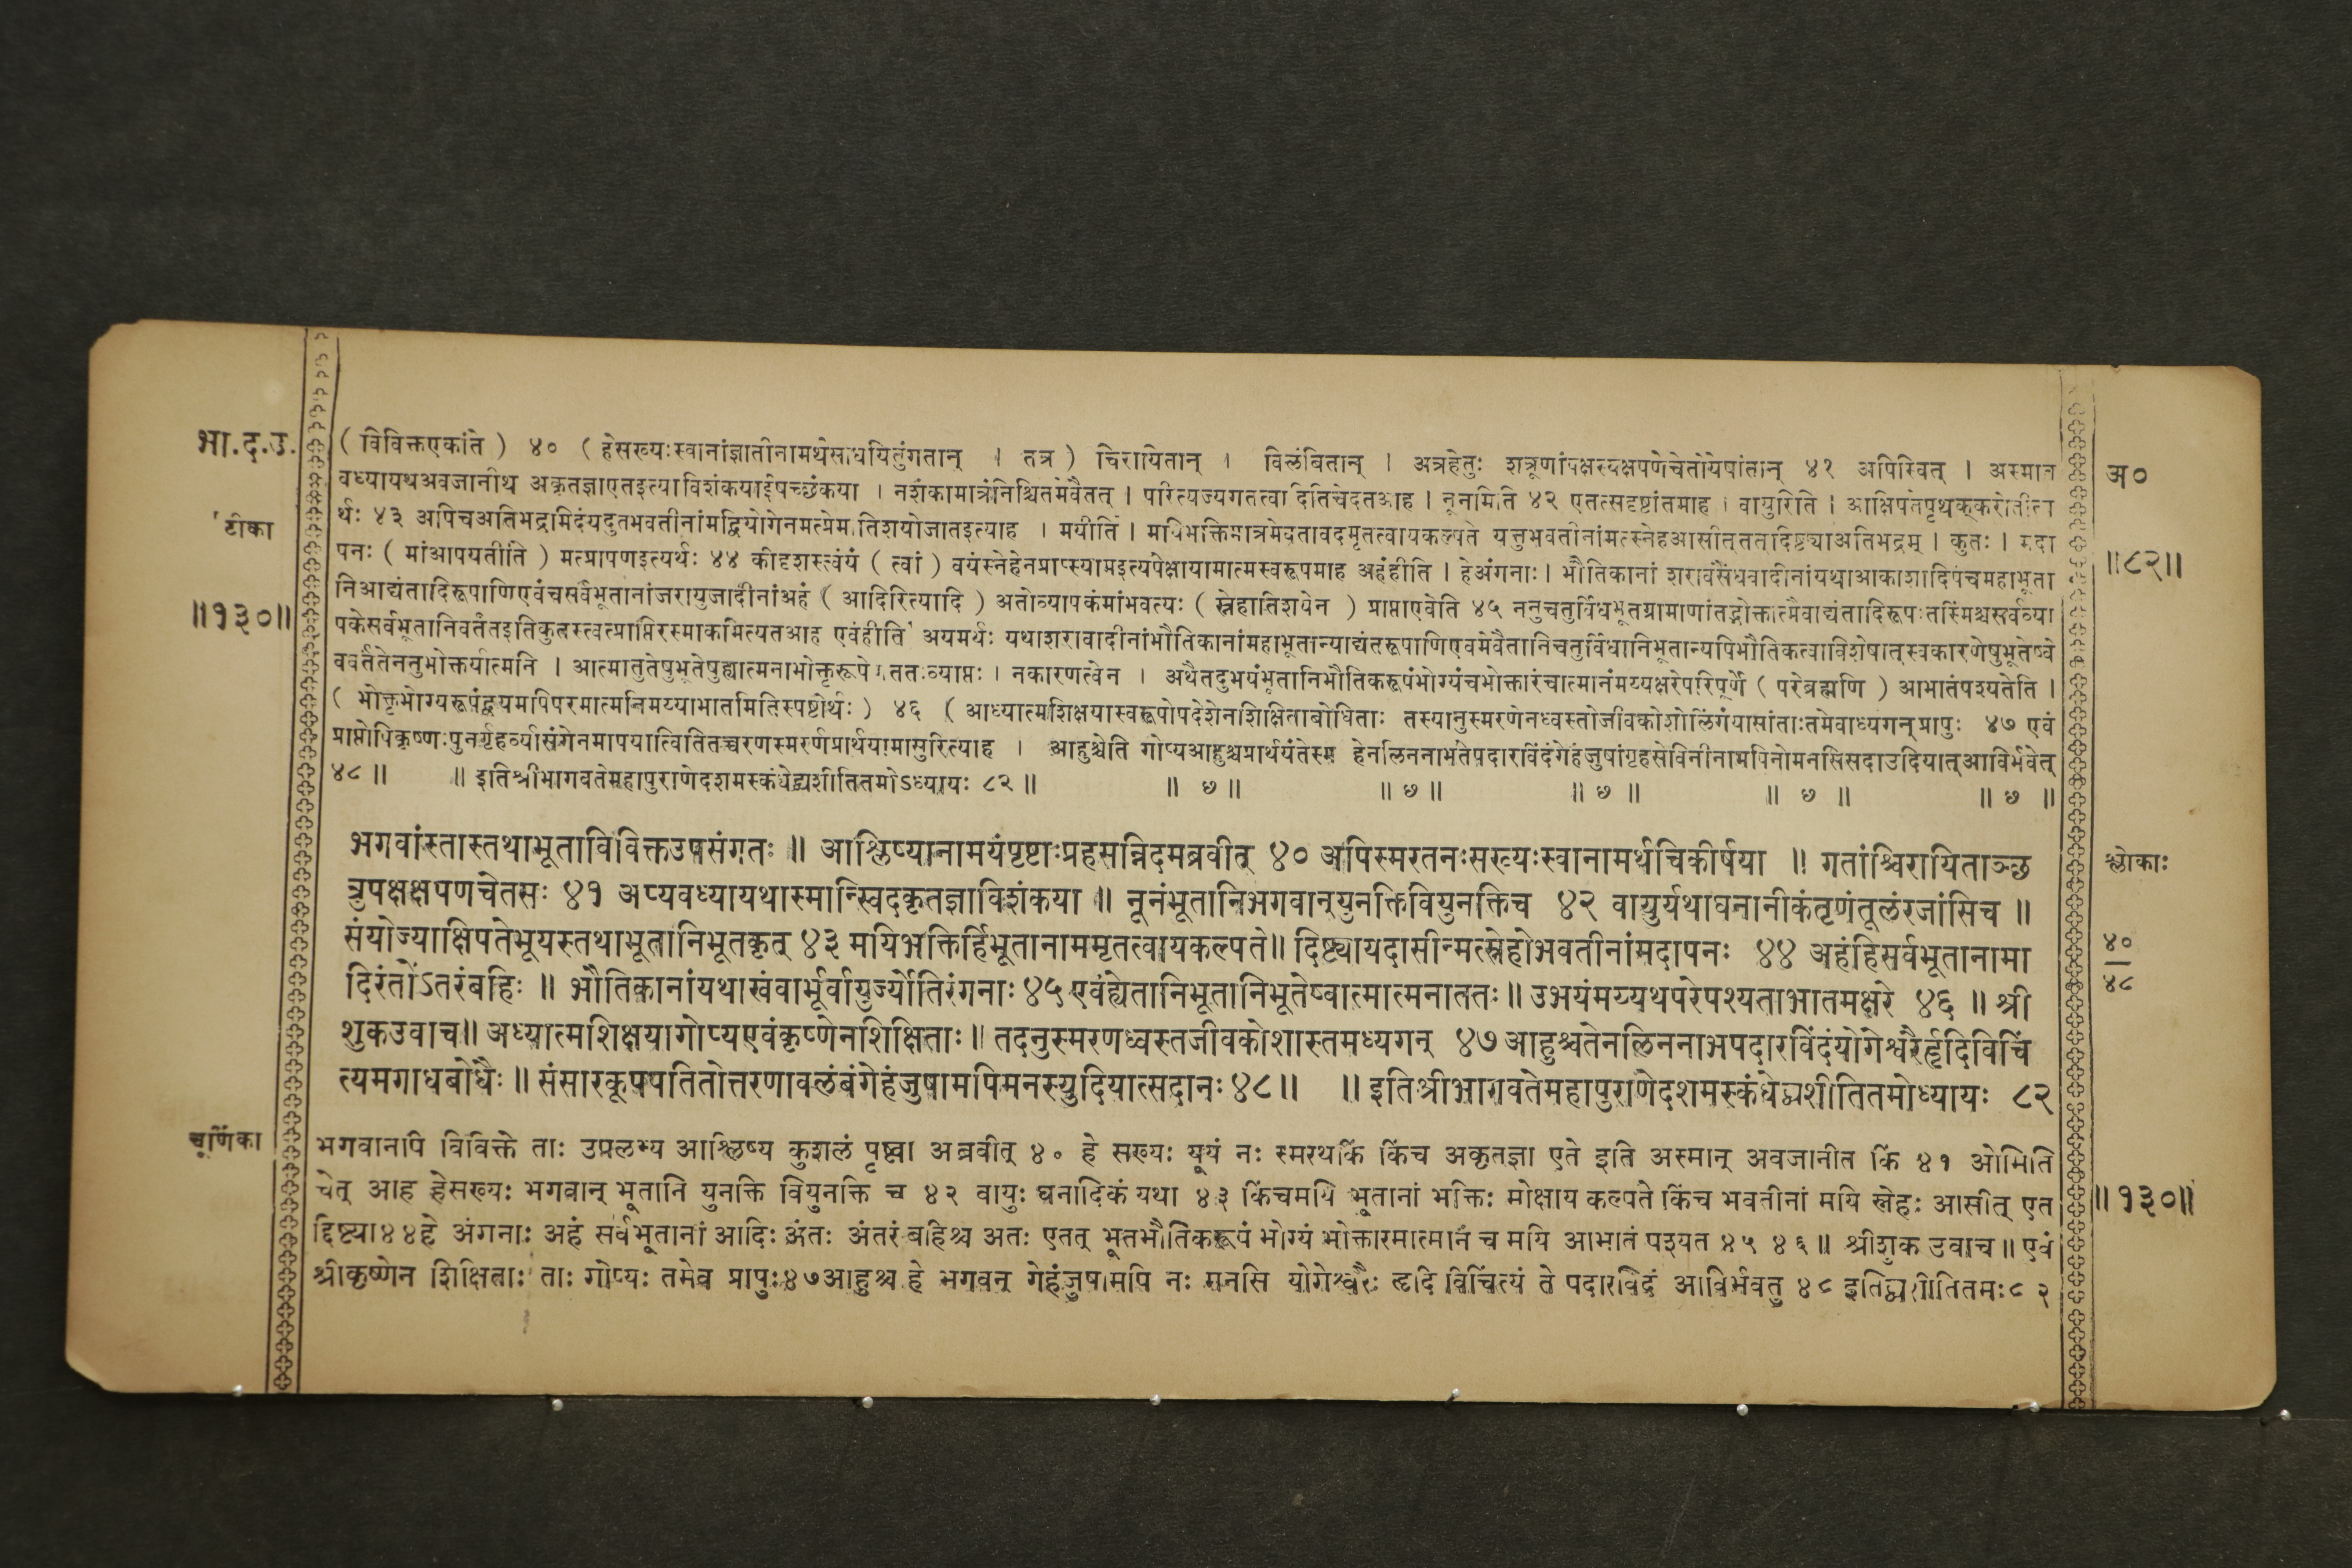 भा.द.उ.
( विविक्तएकांते ) ४० ( हेसख्यःस्वानांज्ञातीनामर्थेसाधयितुंगतान् । तत्र ) चिरायितान् । विलंबितान् । अत्रहेतुः शत्रूणांपक्षस्यक्षपणेचेतोयेषांतान् ४१ अपिस्वित् । अस्मान
वध्यायथअवजानीथ अकृतज्ञाएतइत्याविशंकयाईषच्छंकया । नशंकामात्रंनिश्चितमेवैतत् । परित्यज्यगतत्वादितिचेदतआह । नूनमिति ४२ एतत्सदृष्टांतमाह । वायुरिति । आक्षिपतेपृथक्करोतीत्य
र्थः ४३ अपिचअतिभद्रमिदंयदुतभवतीनांमद्वियोगेनमत्प्रेमातिशयोजातइत्याह । मयीति । मयिभक्तिमात्रमेवतावदमृतत्वायकल्पते यत्तुभवतीनांमत्स्नेहआसीत्तद्दिष्ट्याअतिभद्रम् । कुतः । मदा
पनः ( मांआपयतीति ) मत्प्रापणइत्यर्थः ४४ कीदृशस्त्वंयं ( त्वां ) वयंस्नेहेनप्राप्स्यामइत्यपेक्षायामात्मस्वरूपमाह अहंहीति । हेअंगनाः । भौतिकानां शरावसैंधवादीनांयथाआकाशादिपंचमहाभूता
निआद्यंतादिरूपाणिएवंचसर्वभूतानांजरायुजादीनांअहं ( आदिरित्यादि ) अतोव्यापकंमांभवत्यः ( स्नेहातिशयेन ) प्राप्ताएवेति ४५ ननुचतुर्विधभूतग्रामाणांतद्भोक्तात्मैवाद्यंतादिरूपःतस्मिंश्चसर्वव्या
पकेसर्वभूतानिवर्तंतइतिकुतस्त्वत्प्राप्तिरस्माकमित्यतआह एवंहीति अयमर्थः यथाशरावादीनांभौतिकानांमहाभूतान्याद्यंतरूपाणिएवमेवैतानिचतुर्विधानिभूतान्यपिभौतिकत्वाविशेषात्स्वकारणेषुभूतेष्वे
ववर्ततेनतुभोक्तर्यात्मनि । आत्मातुतेषुभूतेषुह्यात्मनाभोक्तृरूपेणततःव्याप्तः । नकारणत्वेन । अथैतदुभयंभूतानिभौतिकरूपंभोग्यंचभोक्तारंचात्मानंमय्यक्षरेपरिपूर्णे ( परेब्रह्मणि ) आभातंपश्यतेति ।
( भोक्तृभोग्यरूपंद्वयमपिपरमात्मनिमय्याभातमितिस्पष्टोर्थः ) ४६ ( आध्यात्मशिक्षयास्वरूपोपदेशेनशिक्षिताबोधिताः तस्यानुस्मरणेनध्वस्तोजीवकोशोलिंगंयासांताःतमेवाध्यगन्प्रापुः ४७ एवं
प्राप्तोपिकृष्णःपुनर्गृहव्यासंगेनमापयात्वितितच्चरणस्मरणंप्रार्थयामासुरित्याह । आहुश्चेति गोप्यआहुश्चप्रार्थयंतेस्म हेनलिननाभतेपदारविंदंगेहंजुषांगृहसेविनीनामपिनोमनसिसदाउदियात्आविर्भवेत्
४८ ॥ ॥ इतिश्रीभागवतेमहापुराणेदशमस्कंधेद्व्यशीतितमोऽध्यायः ८२ ॥ ॥ ७ ॥ ॥ ७ ॥ ॥ ७ ॥ ॥ ७ ॥ ॥ ७ ॥
टीका
॥१३०॥
अ०
॥८२॥
भगवांस्तास्तथाभूताविविक्तउपसंगतः ॥ आश्लिष्यानामयंपृष्टाःप्रहसन्निदमब्रवीत् ४० अपिस्मरतनःसख्यःस्वानामर्थचिकीर्षया ॥ गतांश्चिरायिताञ्छ
त्रुपक्षक्षपणचेतसः ४१ अप्यवध्यायथास्मान्स्विदकृतज्ञाविशंकया ॥ नूनंभूतानिभगवान्युनक्तिवियुनक्तिच ४२ वायुर्यथाघनानीकंतृणंतूलंरजांसिच ॥
संयोज्याक्षिपतेभूयस्तथाभूतानिभूतकृत् ४३ मयिभक्तिर्हिभूतानाममृतत्वायकल्पते॥ दिष्ट्यायदासीन्मत्स्नेहोभवतीनांमदापनः ४४ अहंहिसर्वभूतानामा
दिरंतोंऽतरंबहिः ॥ भौतिकानांयथाखंवार्भूर्वायुर्ज्योतिरंगनाः ४५ एवंह्येतानिभूतानिभूतेष्वात्मात्मनाततः॥ उभयंमय्यथपरेपश्यताभातमक्षरे ४६ ॥ श्री
शुकउवाच॥ अध्यात्मशिक्षयागोप्यएवंकृष्णेनशिक्षिताः॥ तदनुस्मरणध्वस्तजीवकोशास्तमध्यगन् ४७ आहुश्चतेनलिननाभपदारविंदंयोगेश्वरैर्हृदिविचिं
त्यमगाधबोधैः ॥ संसारकूपपतितोत्तरणावलंबंगेहंजुषामपिमनस्युदियात्सदानः ४८॥ ॥ इतिश्रीभागवतेमहापुराणेदशमस्कंधेद्व्यशीतितमोध्यायः ८२
श्लोकाः
४०
४८
चूर्णिका
भगवानपि विविक्ते ताः उपलभ्य आश्लिष्य कुशलं पृष्ट्वा अब्रवीत् ४० हे सख्यः यूयं नः स्मरथकिं किंच अकृतज्ञा एते इति अस्मान् अवजानीत किं ४१ ओमिति
चेत् आह हेसख्यः भगवान् भूतानि युनक्ति वियुनक्ति च ४२ वायुः घनादिकं यथा ४३ किंचमयि भूतानां भक्तिः मोक्षाय कल्पते किंच भवतीनां मयि स्नेहः आसीत् एत
द्दिष्ट्या४४हे अंगनाः अहं सर्वभूतानां आदिः अंतः अंतरं बहिश्च अतः एतत् भूतभौतिकरूपं भोग्यं भोक्तारमात्मानं च मयि आभातं पश्यत ४५ ४६॥ श्रीशुक उवाच॥ एवं
श्रीकृष्णेन शिक्षिताः ताः गोप्यः तमेव प्रापुः४७आहुश्च हे भगवन् गेहंजुषामपि नः मनसि योगेश्वरैः हृदि विचिंत्यं ते पदारविंदं आविर्भवतु ४८ इतिद्व्यशीतितमः८२
॥१३०॥